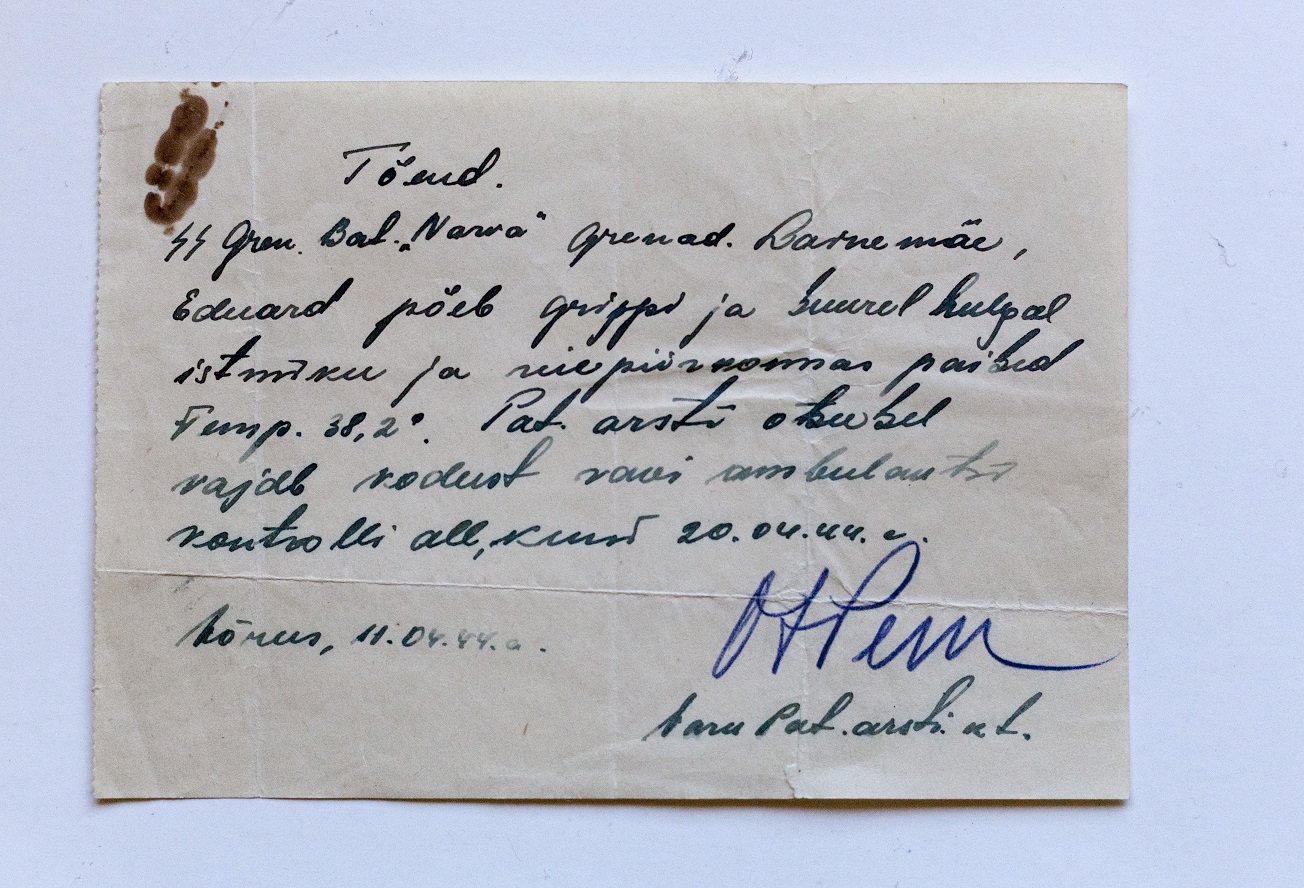 Tõend.
SS Gren. Bat. „Narva" Grenad. Lainemäe,
Eduard põeb grippi ja suurel hulgal
istmiku ja niepiirkonnas paised
Temp. 38,2°. Pat. arsti otsusel
vajab kodust ravi ambulantsi
kontrolli all, kuni 20.04.44.a.
Võrus, 11.04.44.a.
Varu Pat. arsti. k.t.